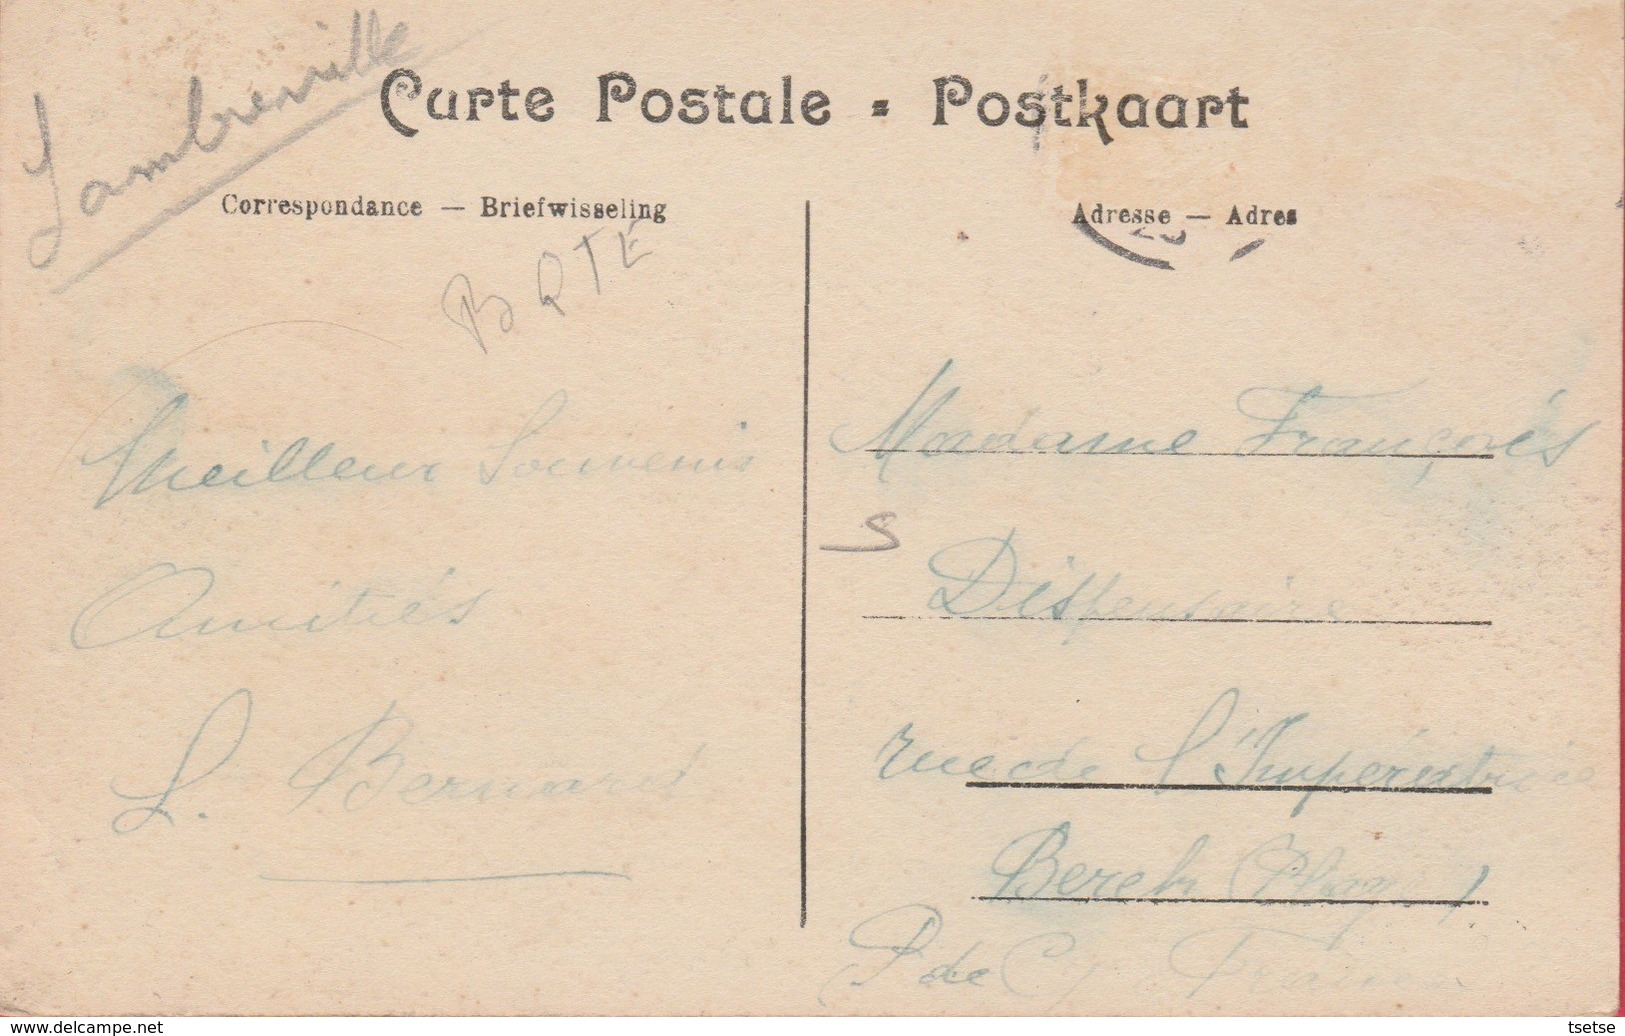 Jambreville
Carte Postale - Postkaart
Correspondance — Briefwisseling
Adresse — Adres
BQTE
Meilleur Souvenir
Amitiés
L. Bernard
Madame François
S
Dispensaire
rue de l'Impératrice
Berck (Plage)
P de C France
www.delcampe.net
tsetse